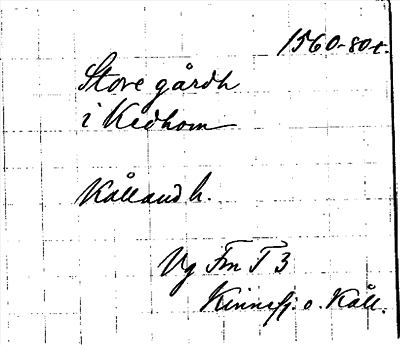 1560-80-t.
Store gårdh
i Kedhom
Kålland h.
Vg Fm T 3
Kinnefj. o. Kåll.